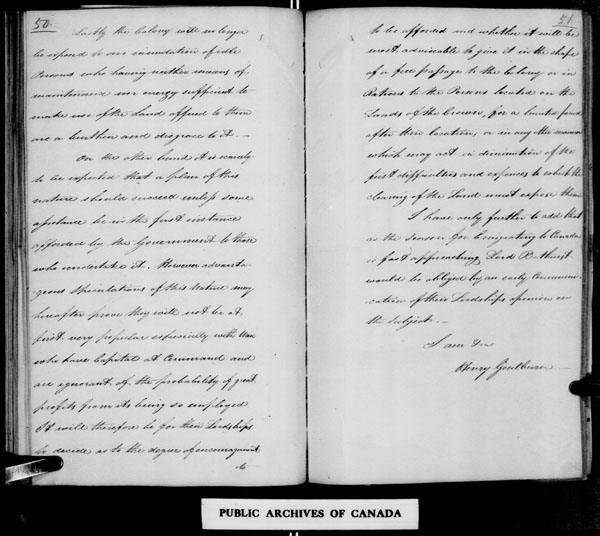 50.
Lastly the Colony will no longer
be exposed to an inundation of idle
Persons who having neither means of
maintenance nor energy sufficient to
make use of the Land offered to them
are a burthen and disgrace to it. —
On the other hand it is scarcely
to be expected that a plan of this
nature should succeed unless some
assistance be in the first instance
afforded by the Government to those
who undertake it. However advanta-
geous Speculations of this Nature may
hereafter prove they will not be at
first very popular especially with Men
who have Capital at Command and
are ignorant of the probability of great
profits from its being so employed
It will therefore be for their Lordships
to decide as to the degree of encouragement
to
51.
to be afforded and whether it will be
most adviseable to give it in the shape
of a free passage to the Colony or in
Rations to the Persons located on the
Lands of the Crown, for a limited period
after their location, or in any other manner
which may act in diminution of the
first difficulties and expences to which the
clearing of the Land must expose them
I have only further to add that
as the Season for Emigrating to Canada
is fast approaching Lord Bathurst
would be obliged by an early Communi-
cation of their Lordships opinion on
the Subject. —
I am &c
Henry Goulburn —
PUBLIC ARCHIVES OF CANADA